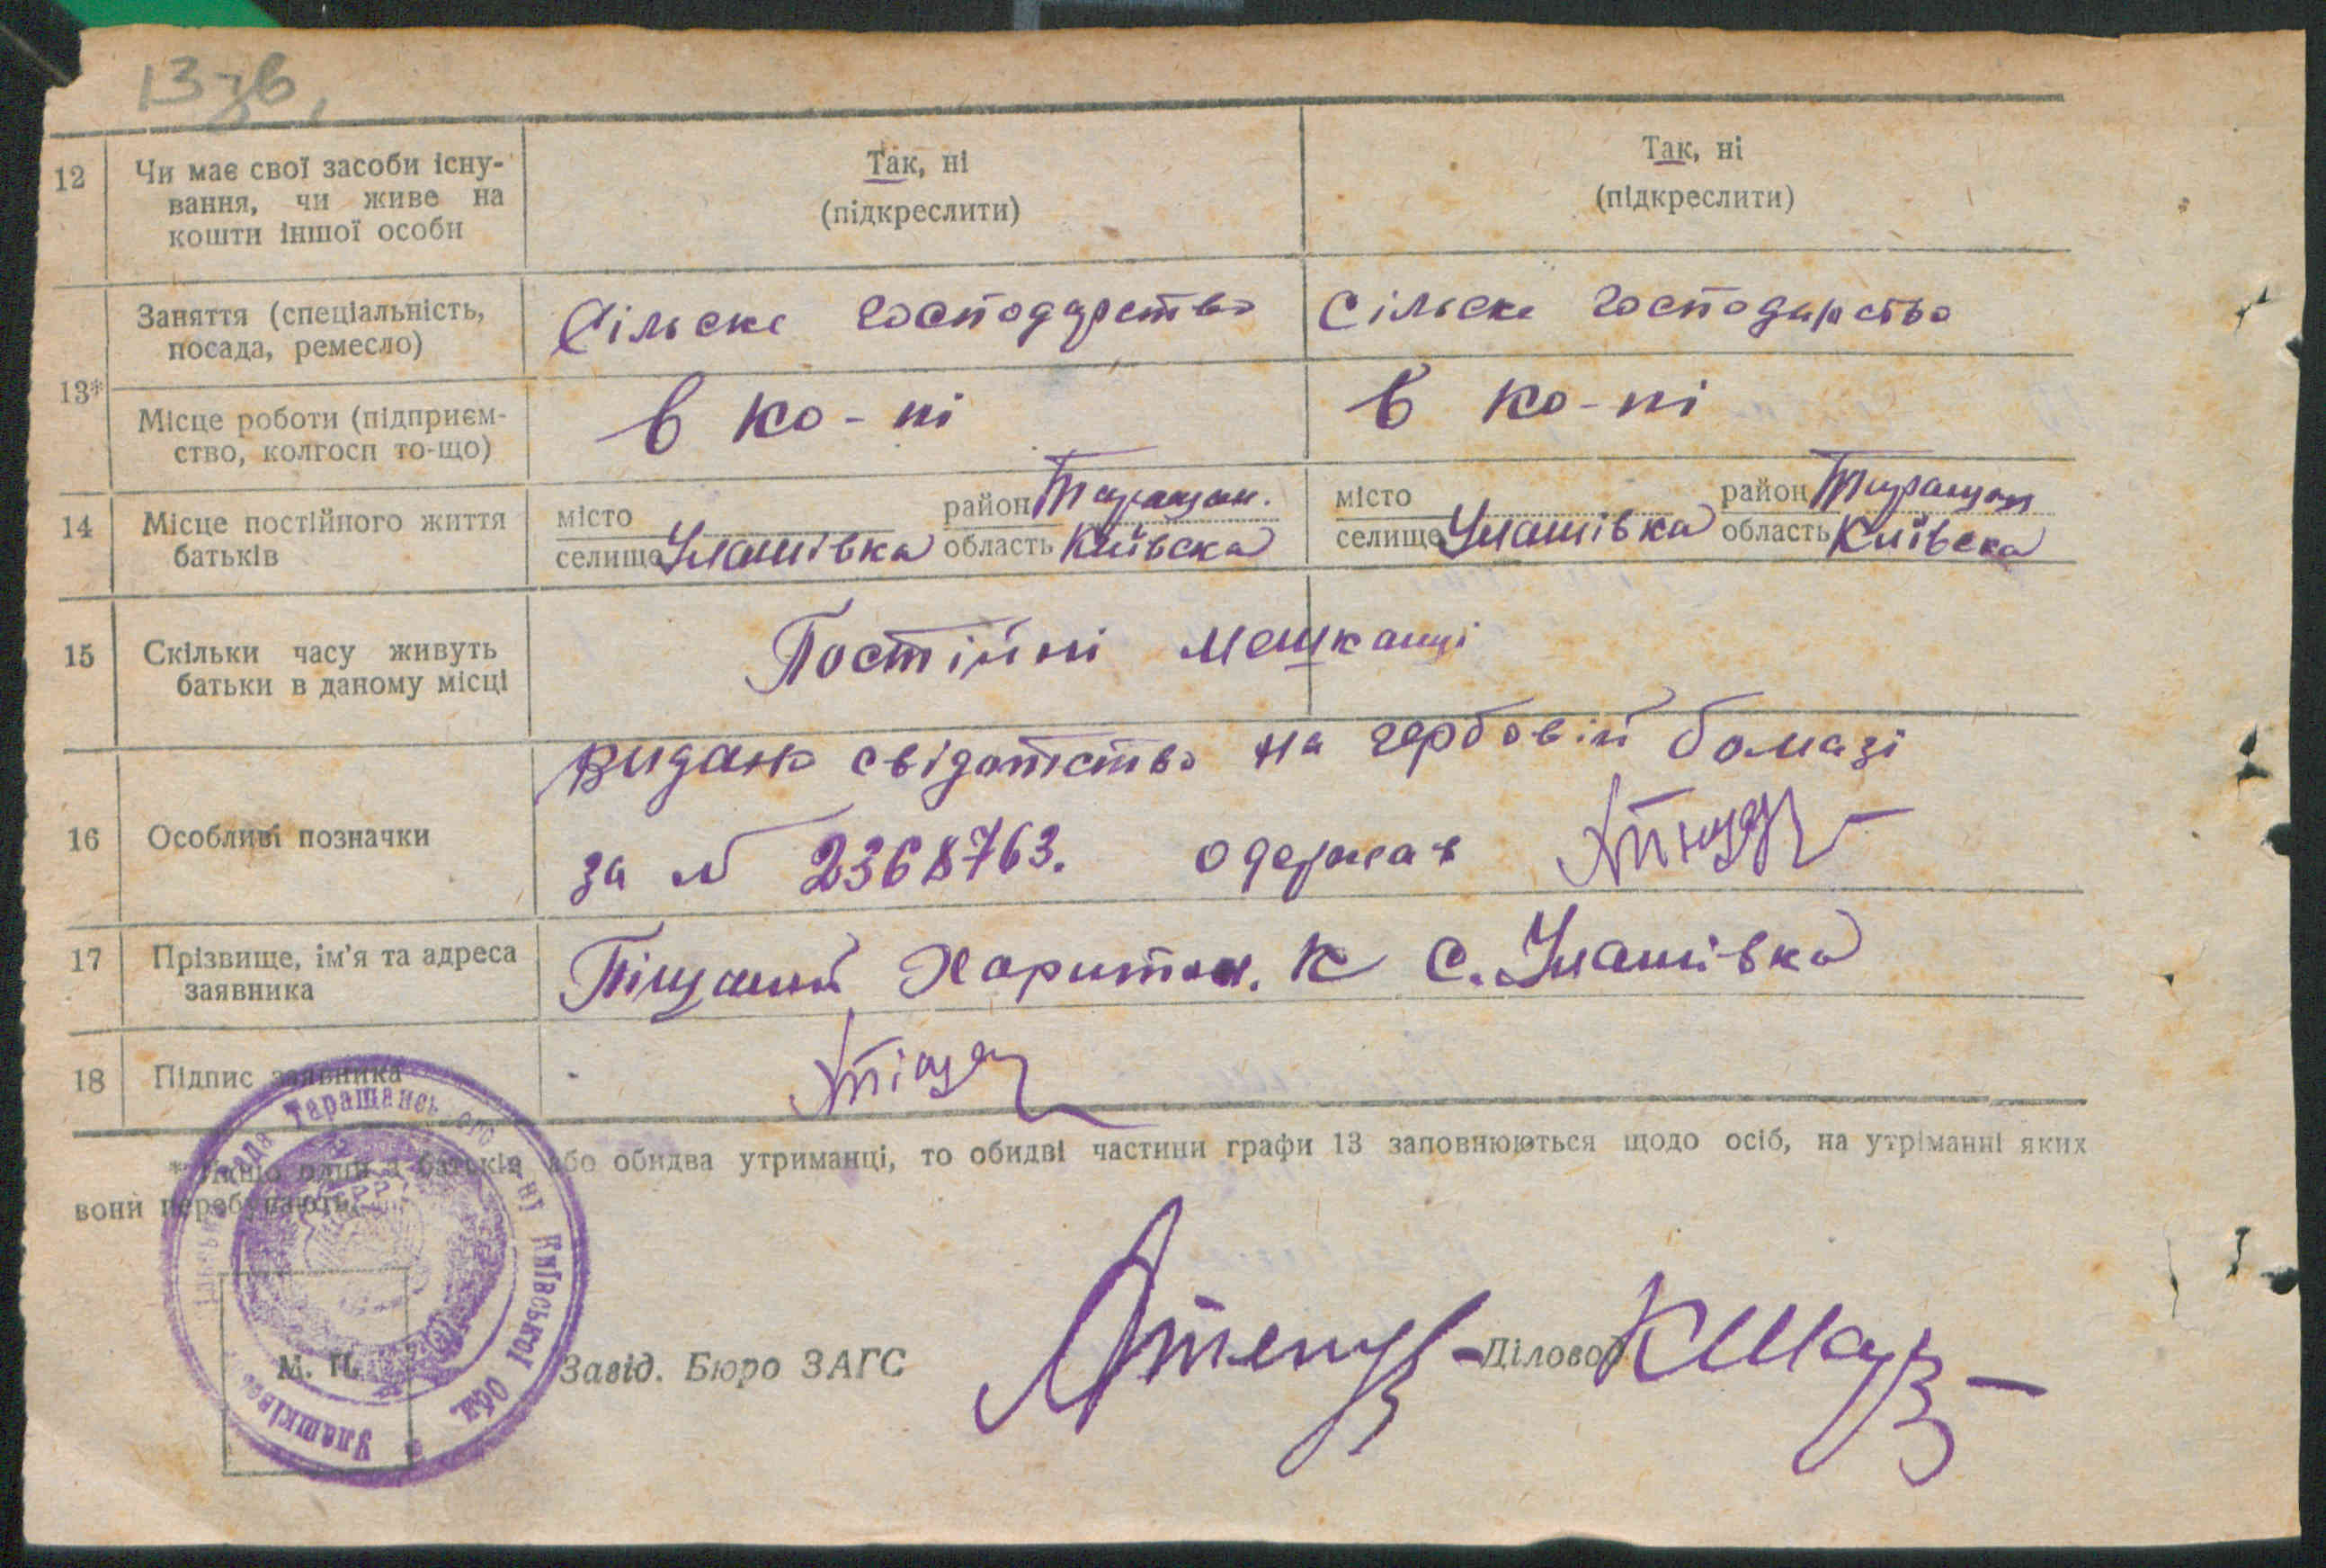 13зв,
12 Чи має свої засоби існу- Так, ні Так, ні
вання, чи живе на (підкреслити) (підкреслити)
кошти іншої особи
Заняття (спеціальність, Сільске господарство Сільске господарство
посада, ремесло)
13*
Місце роботи (підприєм- в ко-пі в ко-пі
ство, колгосп то-що)
14 Місце постійного життя місто район Таращан. місто район Таращан
батьків селище Улашівка область Київска селище Улашівка область Київска
15 Скільки часу живуть Постійні мешканці
батьки в даному місці
видано свідотство на гербовій бомазі
16 Особливі позначки
за № 2368763. одержав
17 Прізвище, ім'я та адреса Піщаний Харитон. К с. Улашівка
заявника
18 Підпис заявника
* Якщо один з батьків або обидва утриманці, то обидві частини графи 13 заповнюються щодо осіб, на утріманні яких
вони перебувають.
М. П. Завід. Бюро ЗАГС Діловод
рада Таращансь ого ну Київської обл. Улашківсь